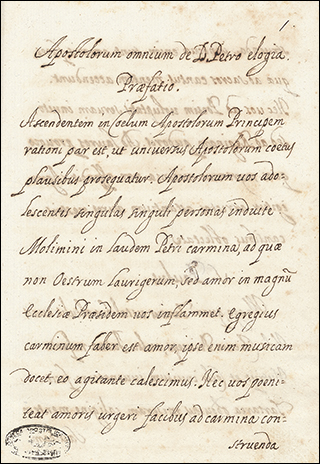 1
Apostolorum omnium de D. Petro elogia.
Præfatio.
Ascendentem in Cœlum Apostolorum Principem
rationi par est, ut universus Apostolorum cœtus
plausibus prosequatur. Apostolorum vos ado-
lescentes singulas singuli personas induite
Molimini in laudem Petri carmina, ad quæ
non Oestrum Laurigerum, sed amor in magnũ
Ecclesiæ Præsidem vos inflammet. Egregius
carminum faber est amor, ipse enim musicam
docet, eo agitante calescimus. Nec vos poeni-
teat amoris urgeri facibus ad carmina con-
struenda